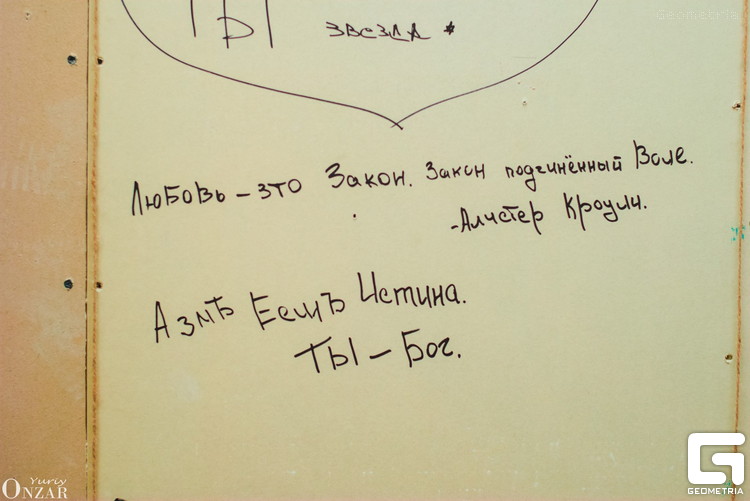 Geometria
ТЫ
ЗВЕЗДА *
ЛЮБОВЬ – ЭТО Закон. Закон подчинённый Воле.
- Алистер Кроули.
Азмъ Еешъ Истина.
ТЫ – Бог.
Yuriy
ONZAR
GEOMETRIA